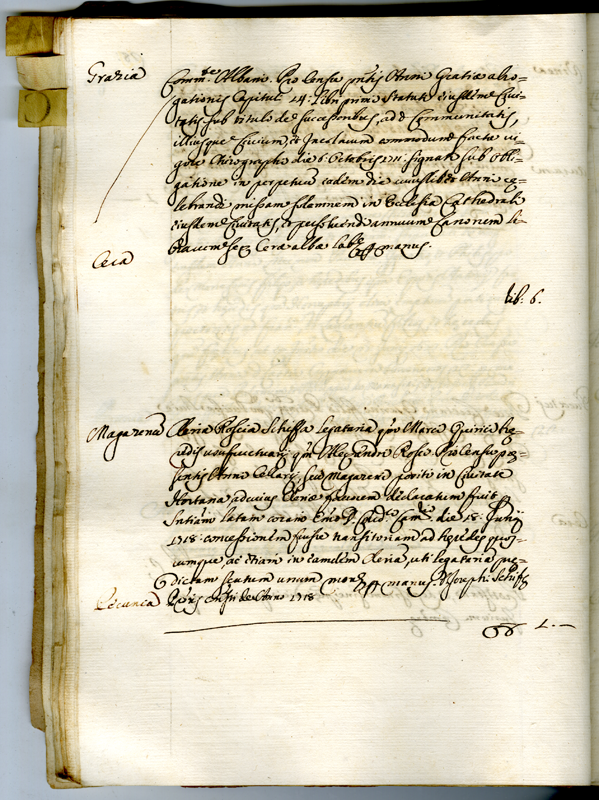 D
Grazia
Comm.te Albani. Pro Censu pntis Anni Gratiæ abro=
gationis Capituli 14: Libri primi Statuti eiusdem Civi=
tatis sub titulo de successionibus, ad Communitatis,
illiusque Civium, et Incolarum commodum factæ vi=
gore Chirographi die 6 Octobris 1711: signati sub obli=
gatione in perpetuum eadem die cuiuslibet Anni ce=
lebrandi missam solemnem in Ecclesia Cathedrali
eiusdem Civitatis, et persolvendi annuum Canonem li=
brarum sex Ceræ albæ lab: manus.
Cera
lib: 6.
Magazeno
Cleria Roscia Schiffa Legataria qm Marci Quirici hę=
redis usufructuarij qm Alexandri Rosci Pro Censu præ=
sentis Anni Cellarij, seu Magazeni positi in Civitate
Hortana ad cuius Cleriæ favorem declaratum fuit
Sntiam latam coram Emo D. Card. Cam. die 18: Junij
1718: concessionem fuisse transitoriam ad hęredes quos=
cumque ac etiam in eamdem Cleriam uti legatariam præ=
dictam scutum unum mon: manus D. Joseph: Schiff
Pecunia
Anno 1718
1. —